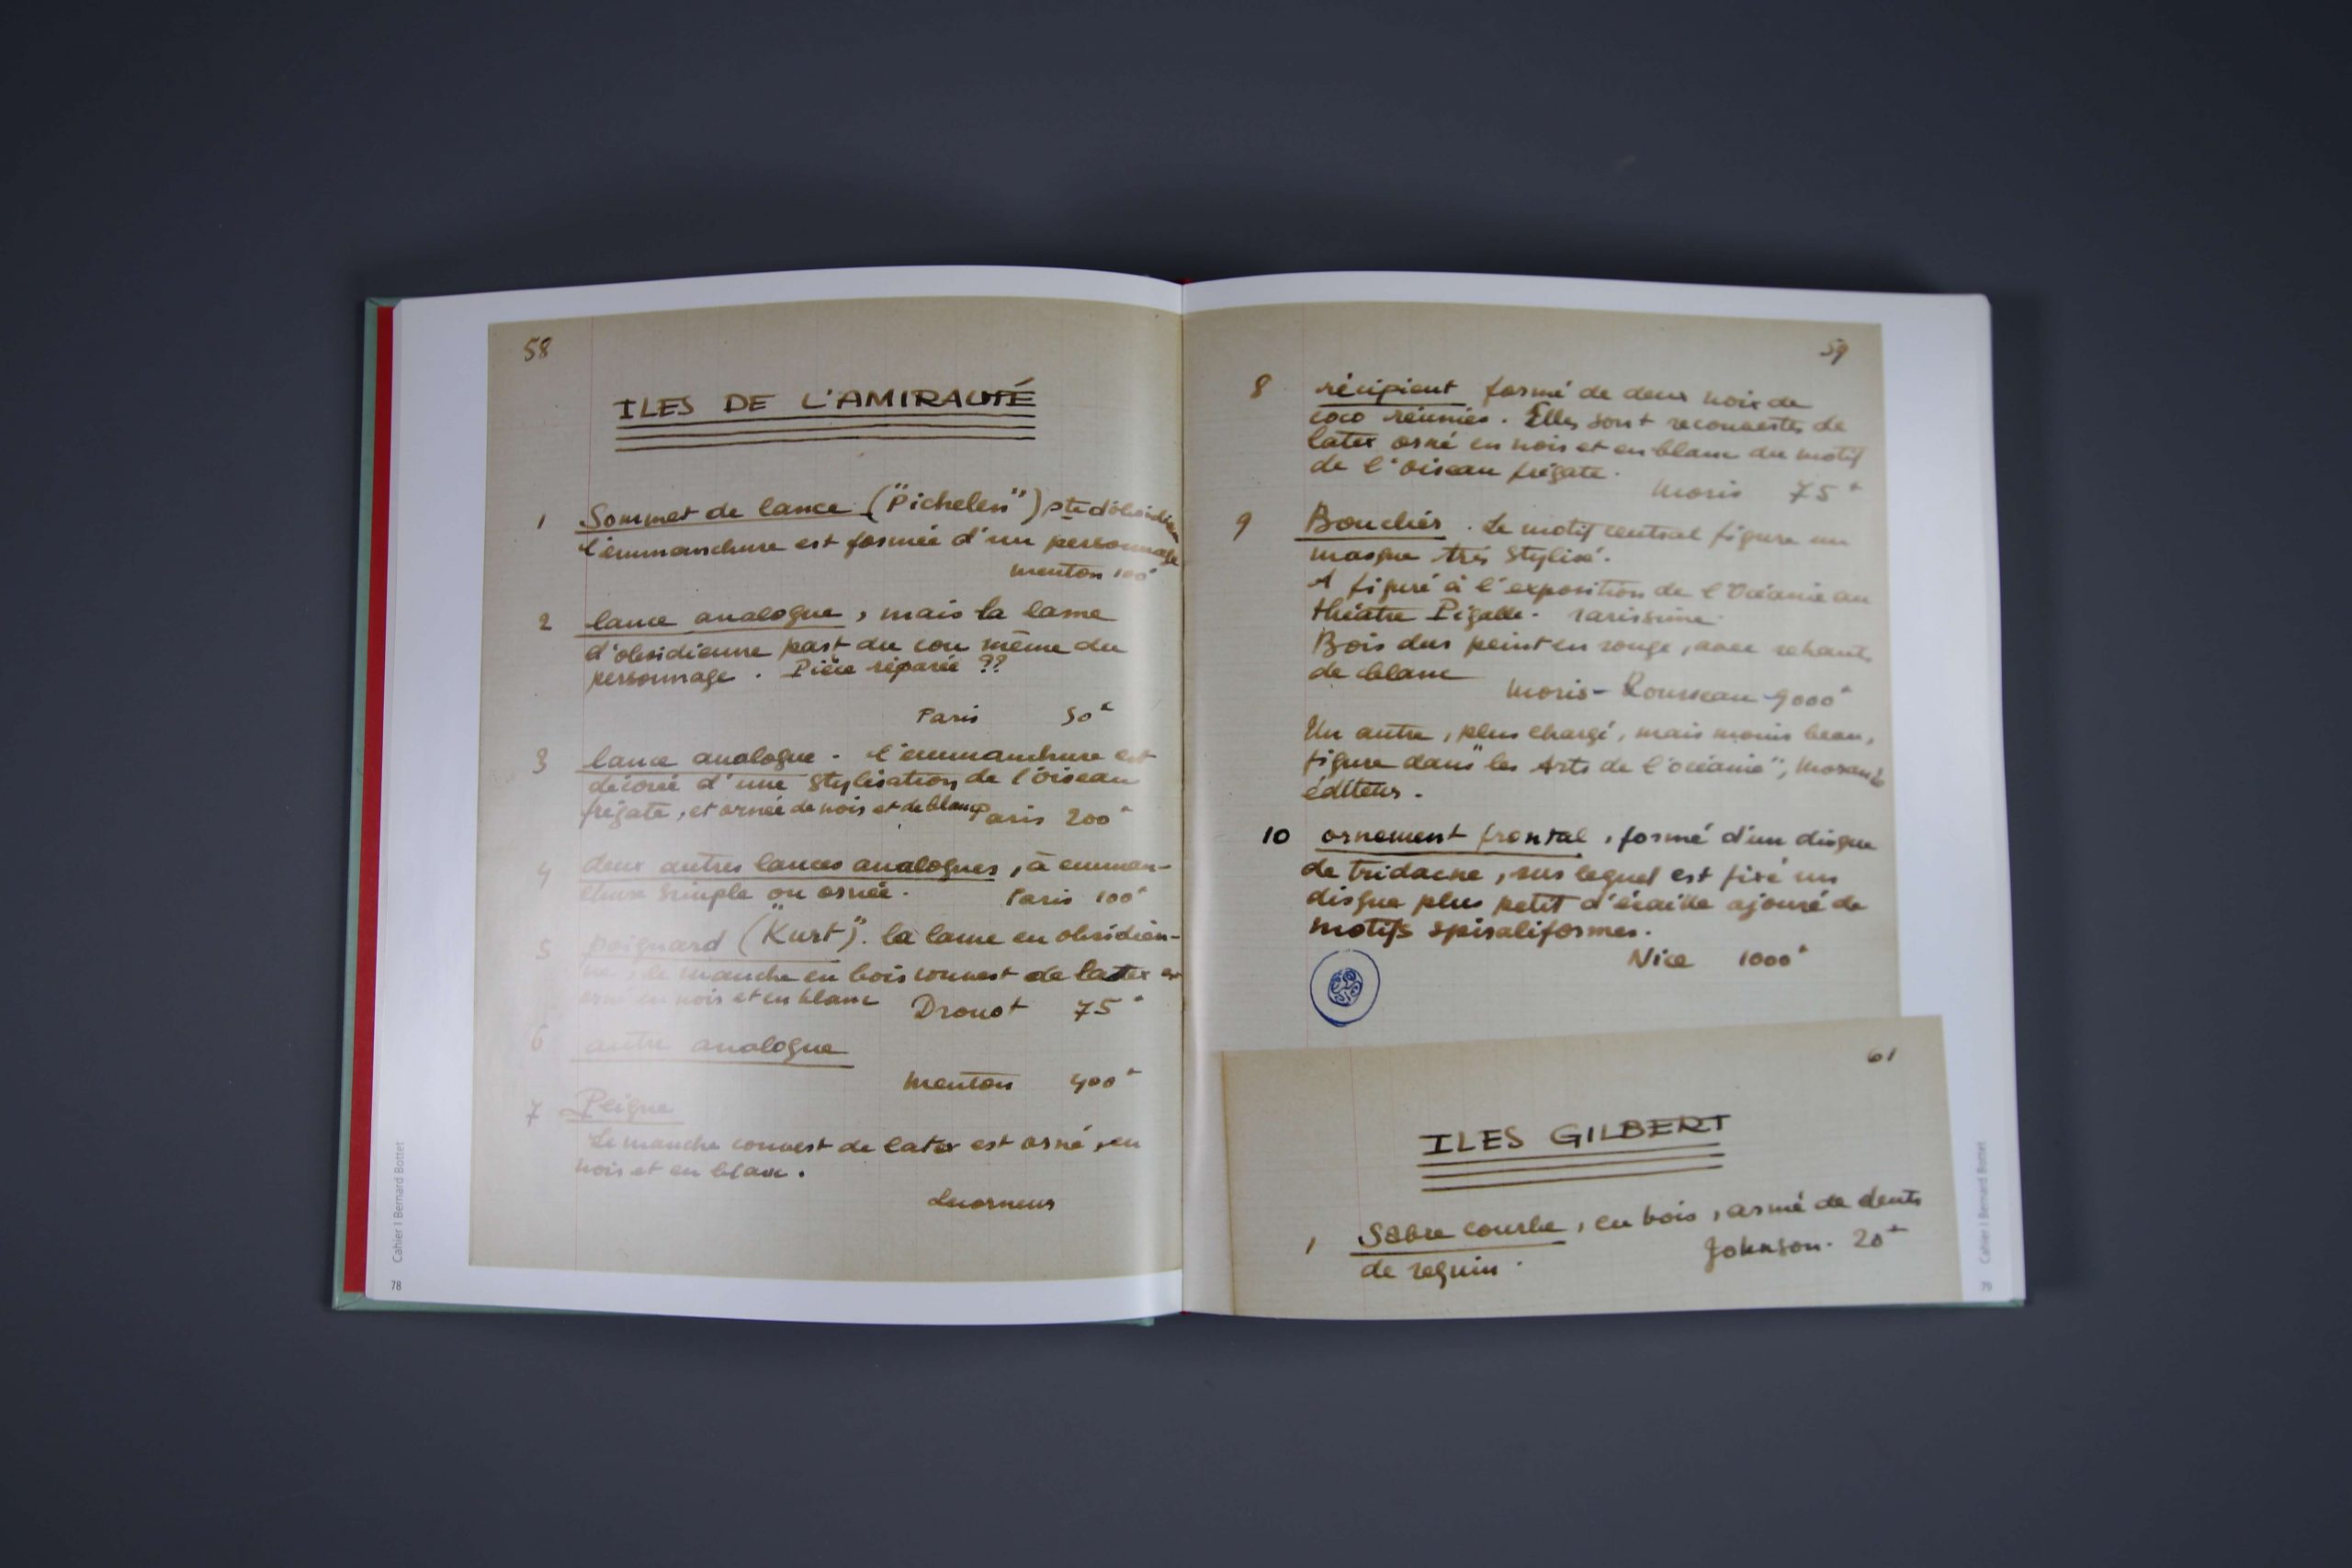 58
ILES DE L'AMIRAUTÉ
1 Sommet de lance ("Pichelen") pte d'obsidienne
l'emmanchure est formée d'un personnage
Menton 100
2 lance analogue, mais la lame
d'obsidienne part du cou même du
personnage. Pièce réparée ??
Paris 50
3 lance analogue. l'emmanchure est
décorée d'une stylisation de l'oiseau
frégate, et ornée de noir et de blanc
Paris 200
4 deux autres lances analogues, à emman-
chure simple ou ornée. Paris 100
5 poignard ("Kurt"). la lame en obsidien-
ne, le manche en bois couvert de latex
orné en noir et en blanc Drouot 75
6 autre analogue
Menton 400
7 Peigne
Le manche couvert de latex est orné, en
noir et en blanc.
Lecorneur
Cahier I Bernard Bottet
78
59
8 récipient formé de deux noix de
coco réunies. Elles sont recouvertes de
latex orné en noir et en blanc du motif
de l'oiseau frégate.
Moris 75
9 Bouclier. Le motif central figure un
masque très stylisé.
A figuré à l'exposition de l'Océanie au
théâtre Pigalle. rarissime.
Bois dur peint en rouge, avec rehauts
de blanc
Moris - Rousseau 9000
Un autre, plus chargé, mais moins beau,
figure dans "les Arts de l'océanie",
éditeur.
10 ornement frontal, formé d'un disque
de tridacne, sur lequel est fixé un
disque plus petit d'écaille ajouré de
motifs spiraliformes.
Nice 1000
61
ILES GILBERT
1 Sabre courbe, en bois, armé de dents
de requin. Johnson. 20
Cahier I Bernard Bottet